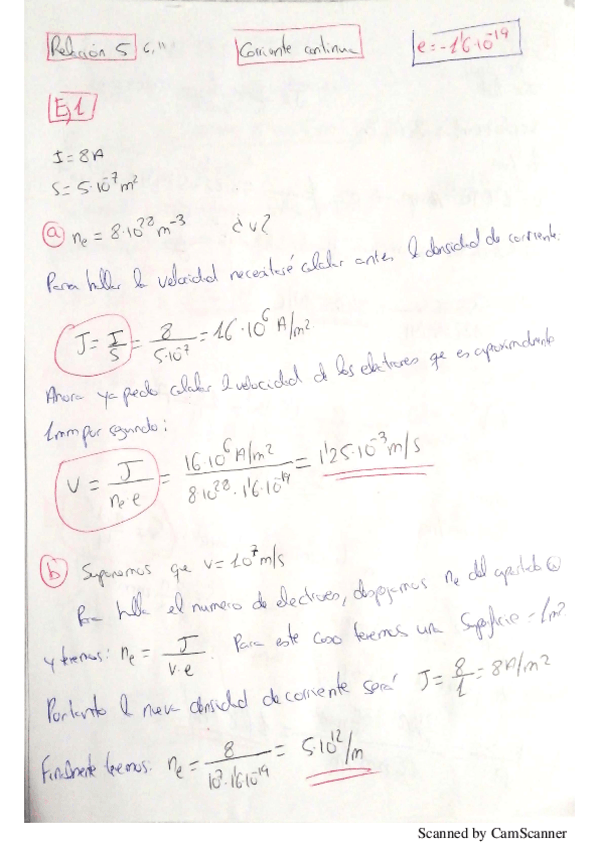 Relación 5 C.I1 Corriente continua e=-1'6·10^-19
Ej 1
I=8A
S=5·10^-7 m^2
a n_e = 8·10^28 m^-3 ¿v?
Para hallar la velocidad necesitaré calcular antes la densidad de corriente.
J = I/S = 8/5·10^-7 = 16·10^6 A/m^2
Ahora ya puedo calcular la velocidad de los electrones que es aproximadamente
1mm por segundo:
V = J/n_e·e = 16·10^6 A/m^2 / 8·10^28·1'6·10^-19 = 1'25·10^-3 m/s
b Suponemos que v=10^7 m/s
Para hallar el numero de electrones, despejamos n_e del apartado a
y tenemos: n_e = J/v·e. Para este caso tenemos una superficie = 1m^2.
Portanto la nueva densidad de corriente será J = 8/1 = 8A/m^2
Finalmente tenemos: n_e = 8/10^7·1'6·10^-19 = 5·10^12/m
Scanned by CamScanner